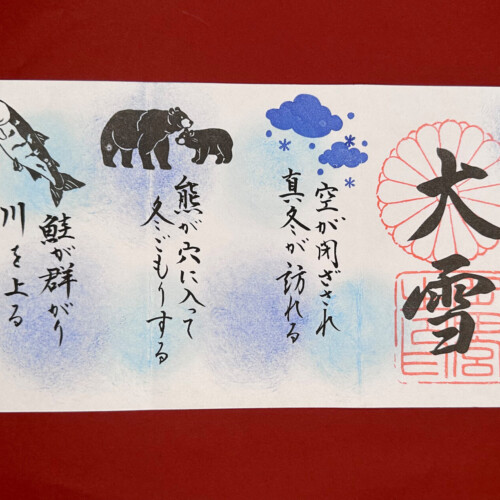 大雪
空が閉ざされ
真冬が訪れる
熊が穴に入って
冬ごもりする
鮭が群がり
川を上る